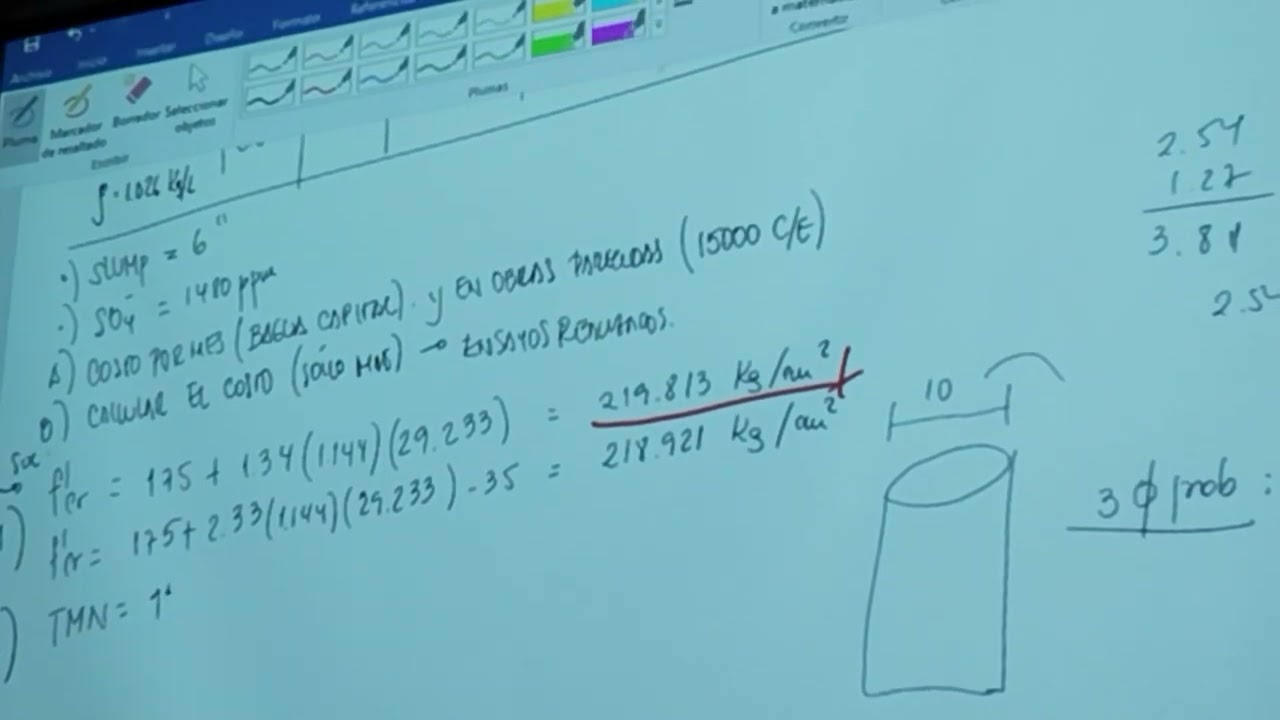 Archivo Inicio Insertar Diseño Formato Referencias
Pluma Marcador de resaltado Borrador Seleccionar objetos
Escribir
Plumas
Convertir
ρ = 1.026 Kg/L
•) SLUMP = 6"
•) SO4⁻ = 1480 ppm
A) COSTO POR MES (BAGUA CAPITAL). Y EN OBRAS PARECIDAS (15000 C/E)
B) CALCULAR EL COSTO (SÓLO MAT) → ENSAYOS REALIZADOS.
Sol
f'cr = 175 + 1.34(1.144)(29.233) = 219.813 Kg/cm²
f'cr = 175 + 2.33(1.144)(29.233) - 35 = 218.921 Kg/cm²
TMN = 1"
2.54
1.27
3.81
2.54
10
3 ϕ prob :